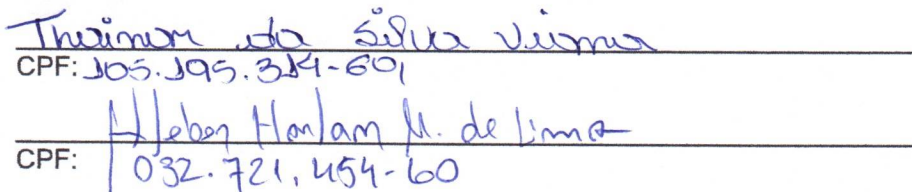 Thainan da Silva Viana
CPF: 105.195.314-60
Kleber Harlam M. de Lima
CPF: 032.721.454-60